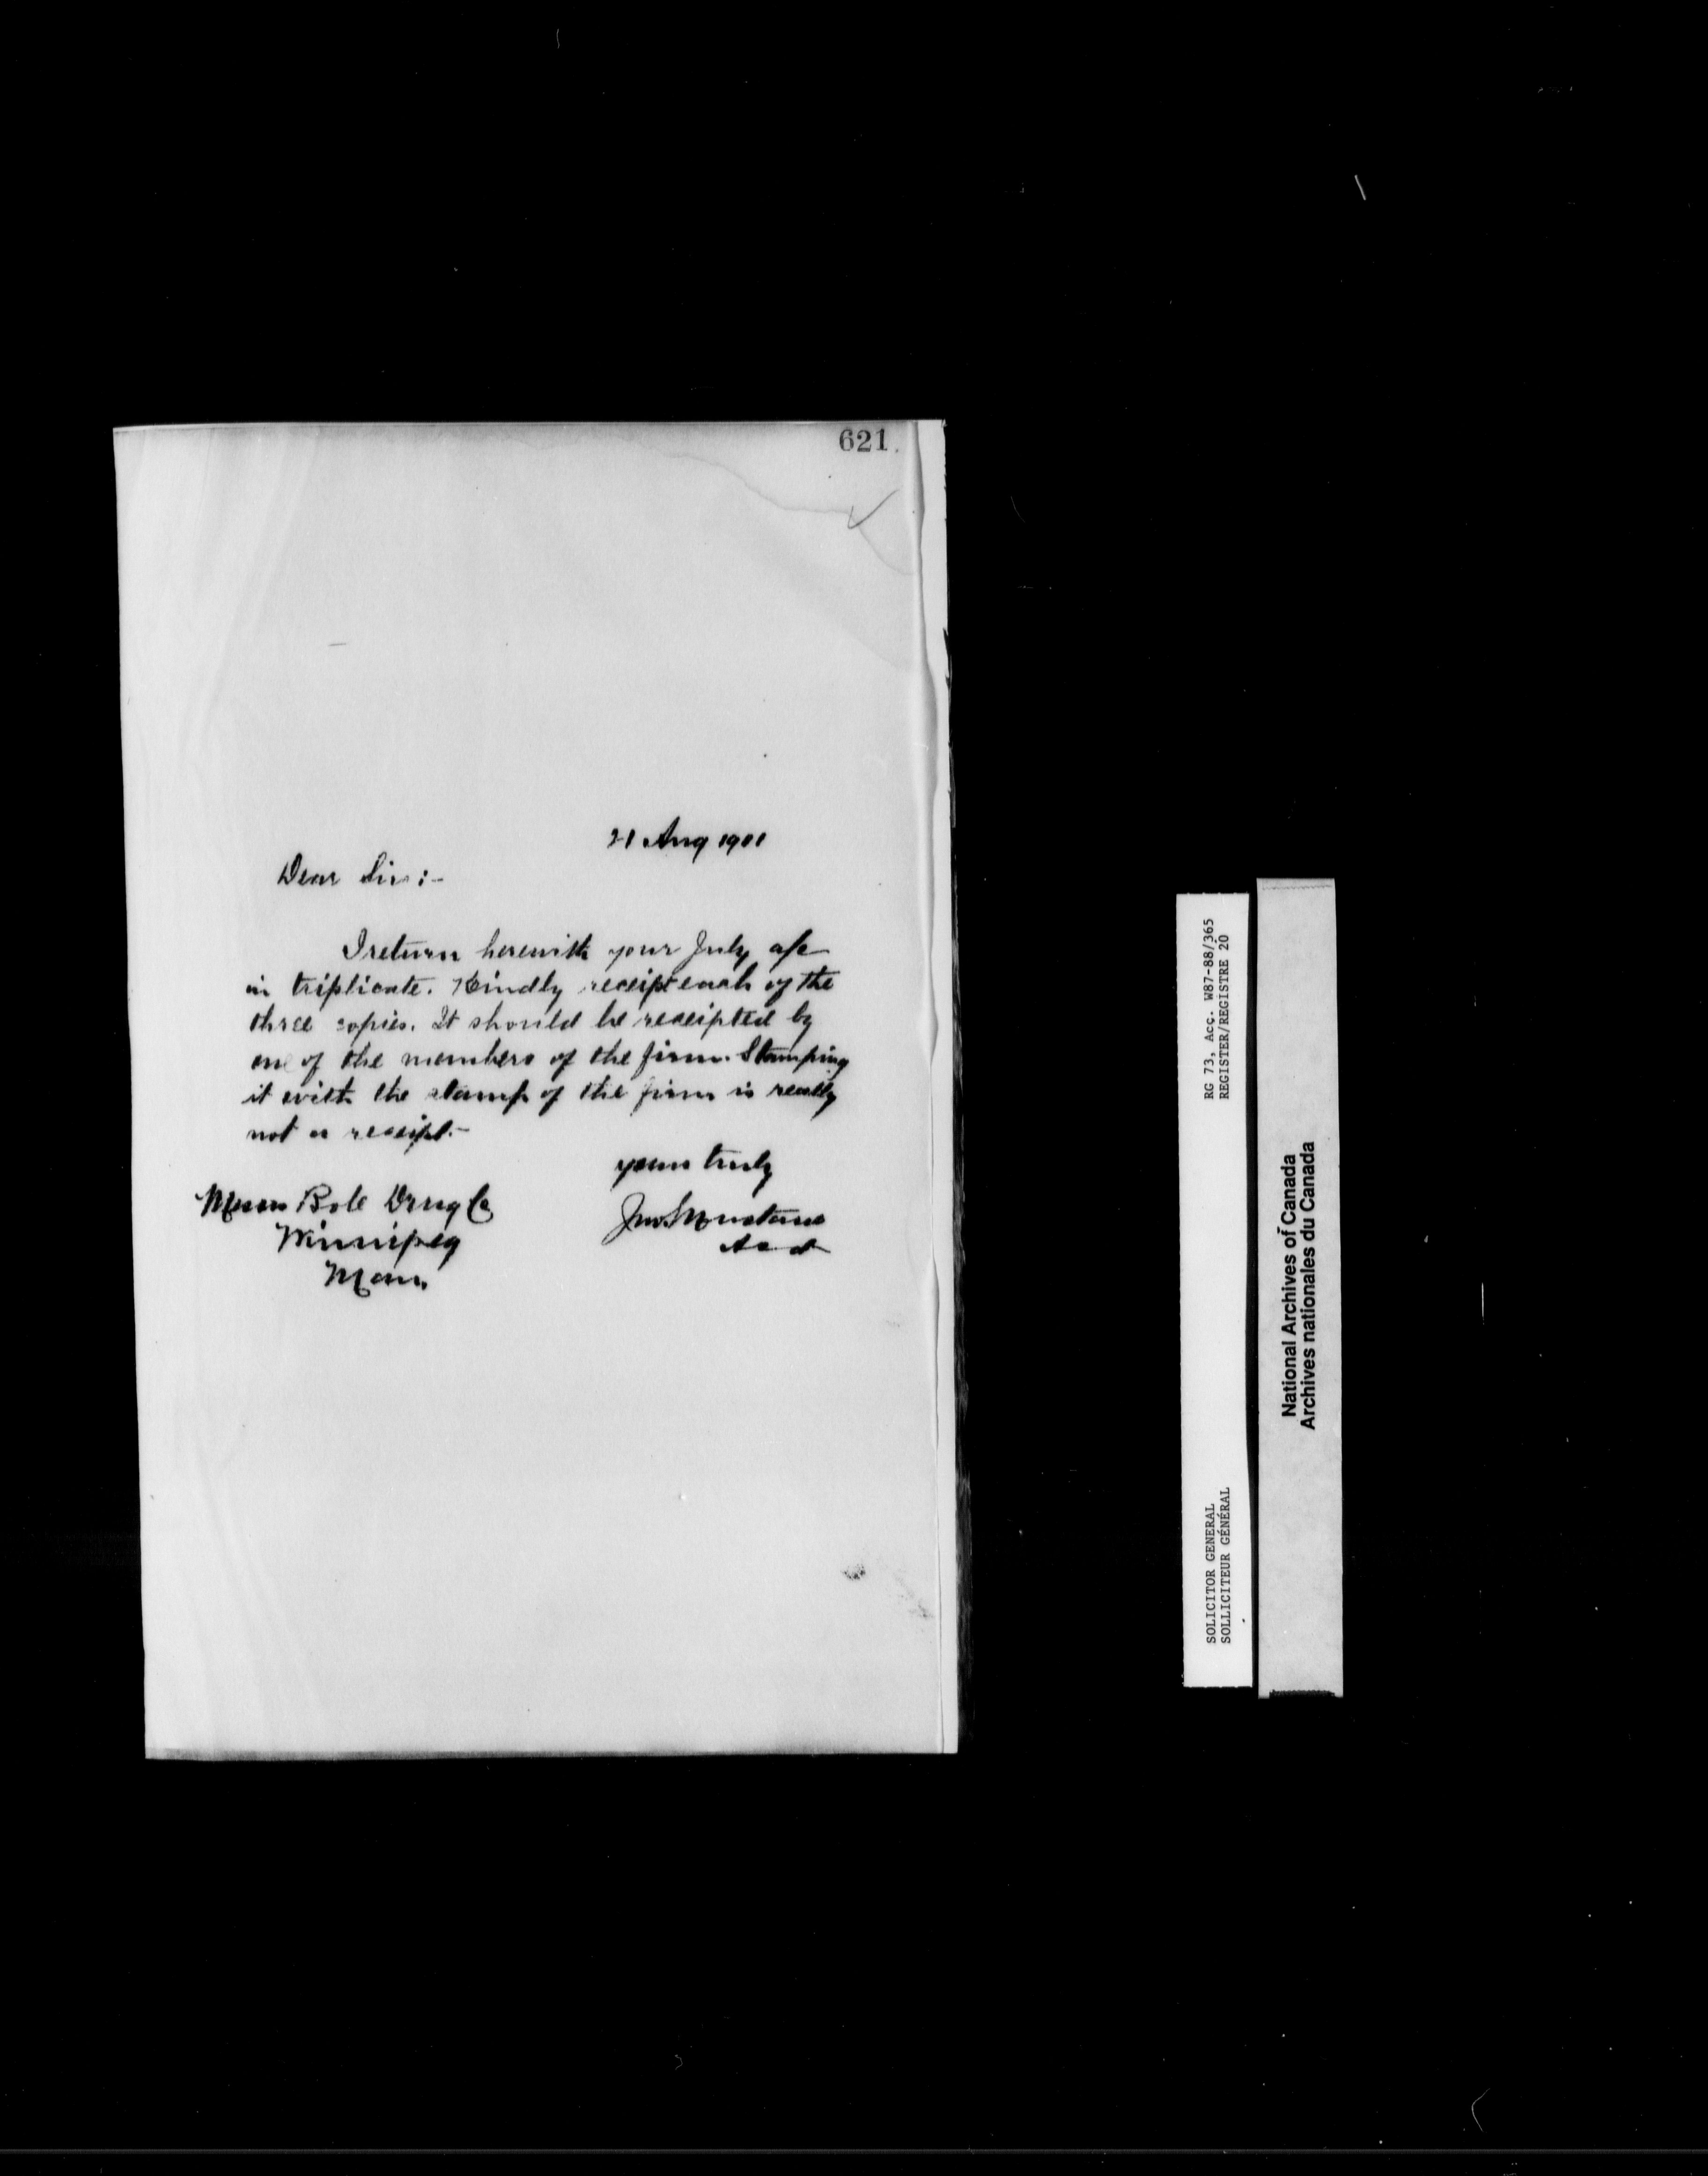 621
21 Aug 1901
Dear Sir :-
I return herewith your July a/c
in triplicate. Kindly receipt each of the
three copies. It should be receipted by
one of the members of the firm. Stamping
it with the stamp of the firm is really
not a receipt.-
yours truly
Jno.
Messrs Bole Drug Co
Winnipeg
Man.
RG 73, Acc. W87-88/365
REGISTER/REGISTRE 20
SOLICITOR GENERAL
SOLLICITEUR GÉNÉRAL
National Archives of Canada
Archives nationales du Canada